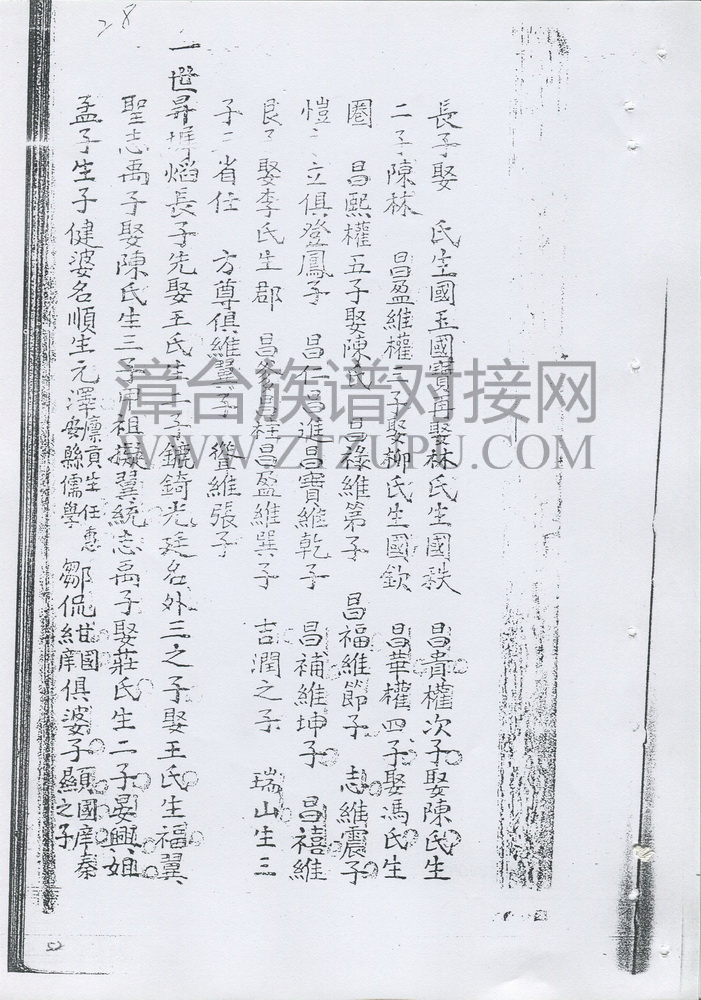 28
長子娶 氏生國玉國寶再娶林氏生國秩 昌貴權次子娶陳氏生
二子陳林 昌盈維權三子娶柳氏生國欽 昌華權四子娶馮氏生
圈 昌熙權五子娶陳氏 昌祿維第子 昌福維節子 志維震子
愷 立俱登鳳子 昌仁昌進昌寶維乾子 昌補維坤子 昌禧維
艮子娶李氏生郡 昌 昌柱昌盈維巽子 吉潤之子 瑞山生三
子三省任 方尊俱維翼子 維張子
一世昇 熖長子先娶王氏生 子鑣錡光廷名外三之子娶王氏生福翼
聖志禹子娶陳氏生三子 祖擬翼統志禹子娶莊氏生二子晏興姐
孟子生子健婆名順生元澤 貢生任惠安縣儒學 鄒侃紺 國 俱婆子顯國 秦之子
漳台族谱对接网
WWW.ZTZUPU.COM
52